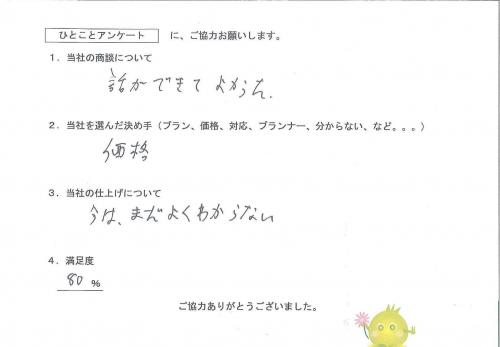 ひとことアンケート に、ご協力お願いします。
1．当社の商談について
話ができてよかった.
2．当社を選んだ決め手（プラン、価格、対応、プランナー、分からない、など。。。）
価格
3．当社の仕上げについて
今は、まだよくわからない
4．満足度
80 %
ご協力ありがとうございました。